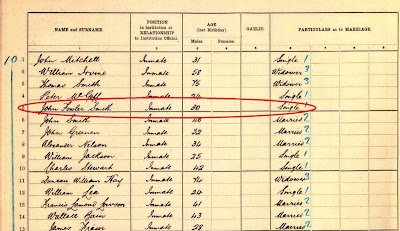 NAME and SURNAME POSITION in Institution or RELATIONSHIP to Institution Official. AGE (last Birthday). Males Females. GAELIC PARTICULARS as to MARRIAGE
10 1 John Mitchell Inmate 31 Single 1
2 William Inmate 58 Widower 3
3 Thomas Smith Inmate 75 Widower 3
4 Peter Inmate 24 Single 1
5 John Fowler Smith Inmate 30 Single 1
6 John Smith Inmate 46 Married 2
7 John Inmate 22 Married 2
8 Alexander Nelson Inmate 34 Married 2
9 William Jackson Inmate 25 Single 1
10 Charles Stewart Inmate 42 Single 1
11 Duncan William Inmate 74 Widower 3
12 William Inmate 24 Single 1
13 Francis Inmate 41 Married 2
14 Wallace Inmate 43 Married 2
15 James Fraser Inmate 28 Married 2